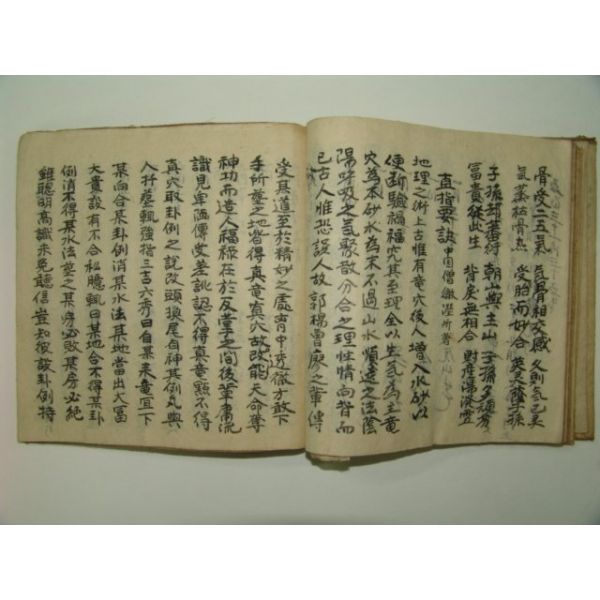 骨受二五氣 氣骨相交感 久則氣已矣
氣蒸枯骨熱 受胎而妙合 英灵蔭子孫
子孫却蕃衍 朝山與主山 子孫多
冨貴從此生 背戾无相合 對座
直指要訣 中国僧 㵎瀅所著
地理之術上古惟有竜穴後人增入水砂以
便断驗禍福究其至理全以生氣為主竜
穴為本砂水為末不過山水順逆之法陰
陽呼吸之氣聚散分合之理性情向背而
已古人惟恐誤人故郭楊曾廖之軰傳
受其道至於精妙之處胷中秀徹方敢下
手所塟之地皆得真竜真穴故改能天命奪
神功而造人福祿在於反掌之间後軰庸流
識見卑陋傳受差訛認不得真竜㸃不得
真穴取卦例之說改頭換尾自神其例凢與
人扦塟輒強指三吉六秀曰自某来竜宜下
某向合某卦例消某水法某地當出大冨
大貴設有不合松臆輒曰某地合不得某卦
例消不得某水法塟之某房必敗某房必絶
雖聰明高識未免聽信豈知彼談卦例特